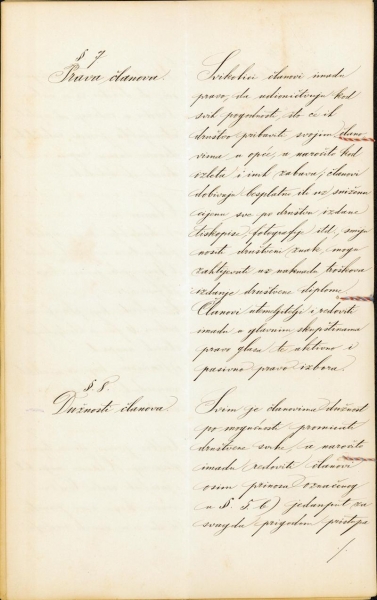 § 7
Prava članova.
Svikolici članovi imadu
pravo, da učestvuju kod
svih pogodnosti, što će ih
društvo pribaviti svojim člano
vima u opće, a naročito kod
izleta i inih zabava; članovi
dobivaju besplatno ili uz sniženu
cijenu sve po društvu izdane
tiskopise, fotografije itd., smiju
nositi društveni znak, mogu
zahtjevati uz naknadu troškova
izdanje društvene diplome.
Članovi utemeljitelji i redoviti
imadu u glavnim skupštinama
pravo glasa te aktivno i
pasivno pravo izbora.
§ 8.
Dužnosti članova.
Svim je članovima dužnost
po mogućnosti promicati
društvene svrhe, a naročito
imadu redoviti članovi
osim prinosa označenog
u §. 6) jedanput za
svagda prigodom pristupa